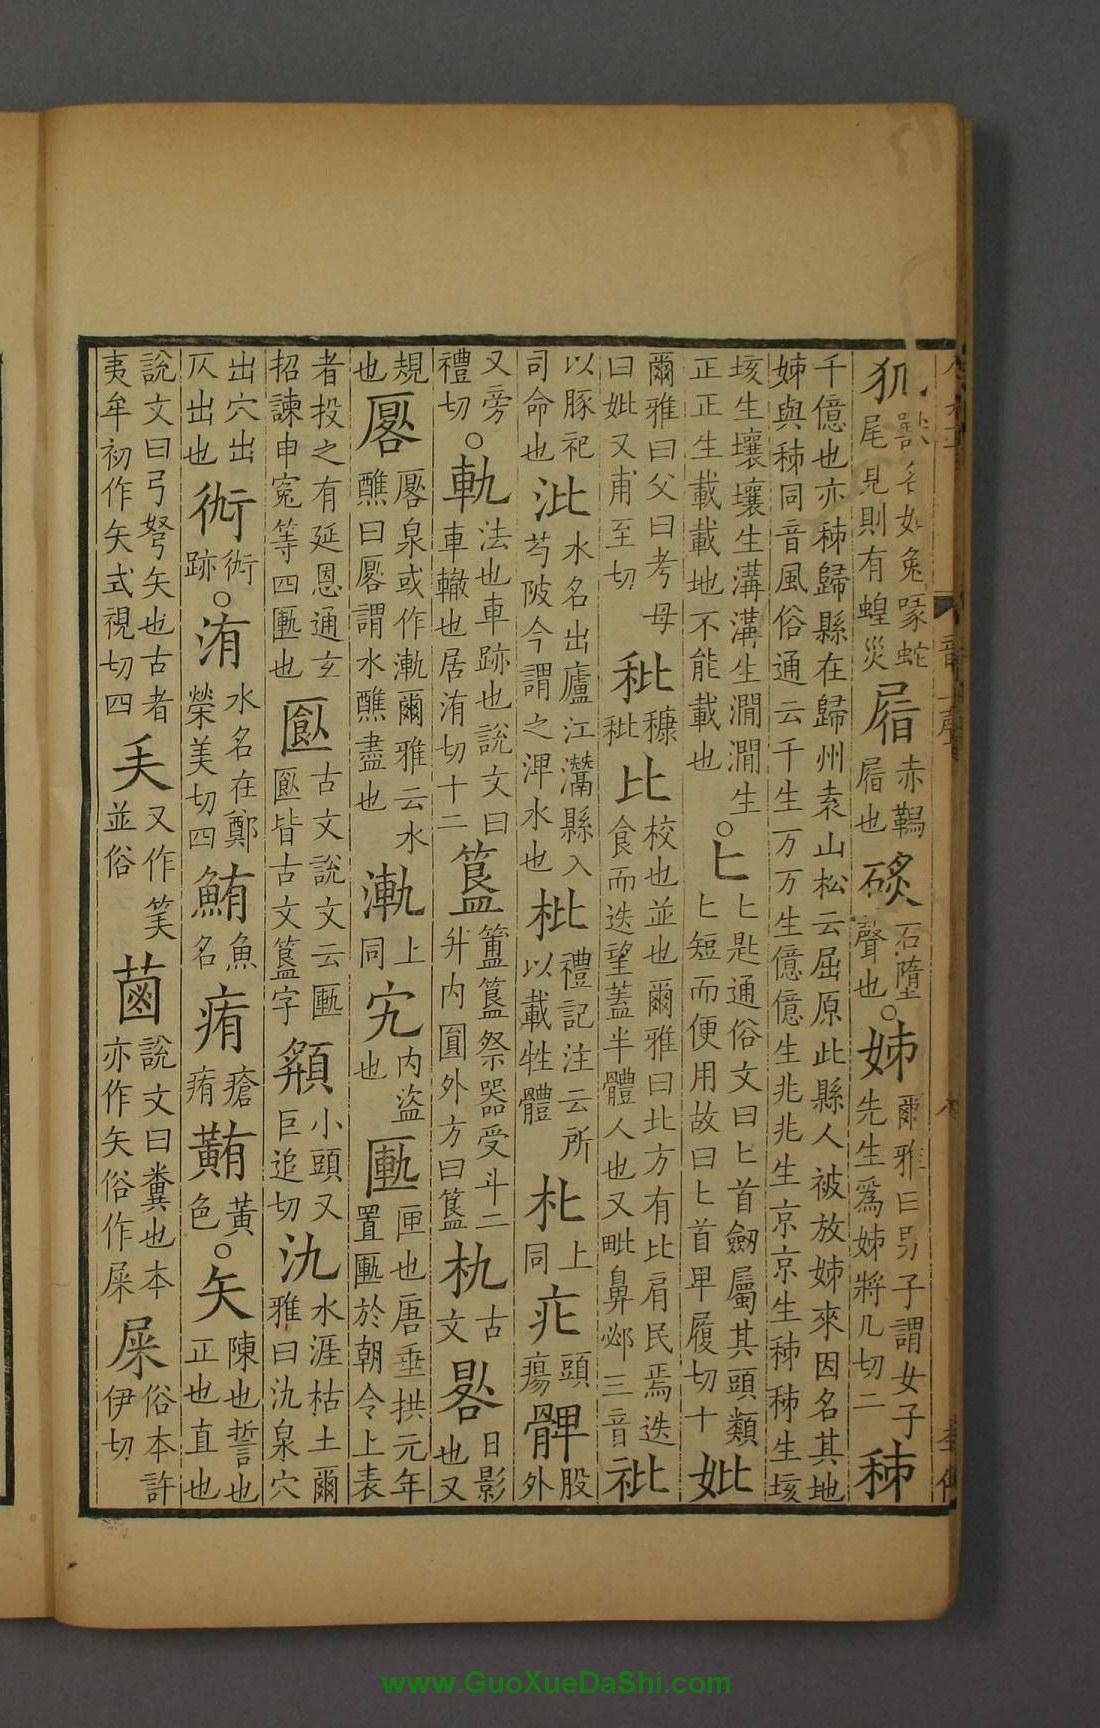 犰獸名如兔喙蛇尾見則有蝗災𡲕赤鞨𡲕也石墮聲也○姊爾雅曰男子謂女子先生爲姊將几切二秭
千億也亦秭歸縣在歸州袁山松云屈原此縣人被放姊來因名其地姊與秭同音風俗通云千生万万生億億生兆兆生京京生秭秭生垓
垓生壤壤生溝溝生澗澗生正正生載載地不能載也○匕匕匙通俗文曰匕首劒屬其頭類匕短而便用故曰匕首卑履切十妣
爾雅曰父曰考母曰妣又甫至切秕穅秕比校也並也爾雅曰北方有比肩民焉迭食而迭望蓋半體人也又毗鼻邲三音䃾
以豚祀司命也沘水名出廬江灊縣入芍陂今謂之淠水也枇禮記注云所以載牲體朼上同疕頭瘍髀股外
又旁禮切○軌法也車跡也說文曰車轍也居洧切十二簋簠簋祭器受斗二升內圓外方曰簋朹古文晷日影也又
規也厬厬泉或作漸爾雅云水醮曰厬謂水醮盡也漸上同宄內盜也匭匣也唐垂拱元年置匭於朝令上表
者投之有延恩通玄招諫申寃等四匭也匓古文說文云匭匓皆古文簋字頯小頭又巨追切氿水涯枯土爾雅曰氿泉穴
出穴出仄出也跡○洧水名在鄭榮美切四鮪魚名痏瘡痏䵋黃色○矢陳也誓也正也直也
說文曰弓弩矢也古者夷牟初作矢式視切四𠂕又作笶並俗𦳊說文曰糞也本亦作矢俗作屎屎俗本許伊切
www.GuoXueDaShi.com